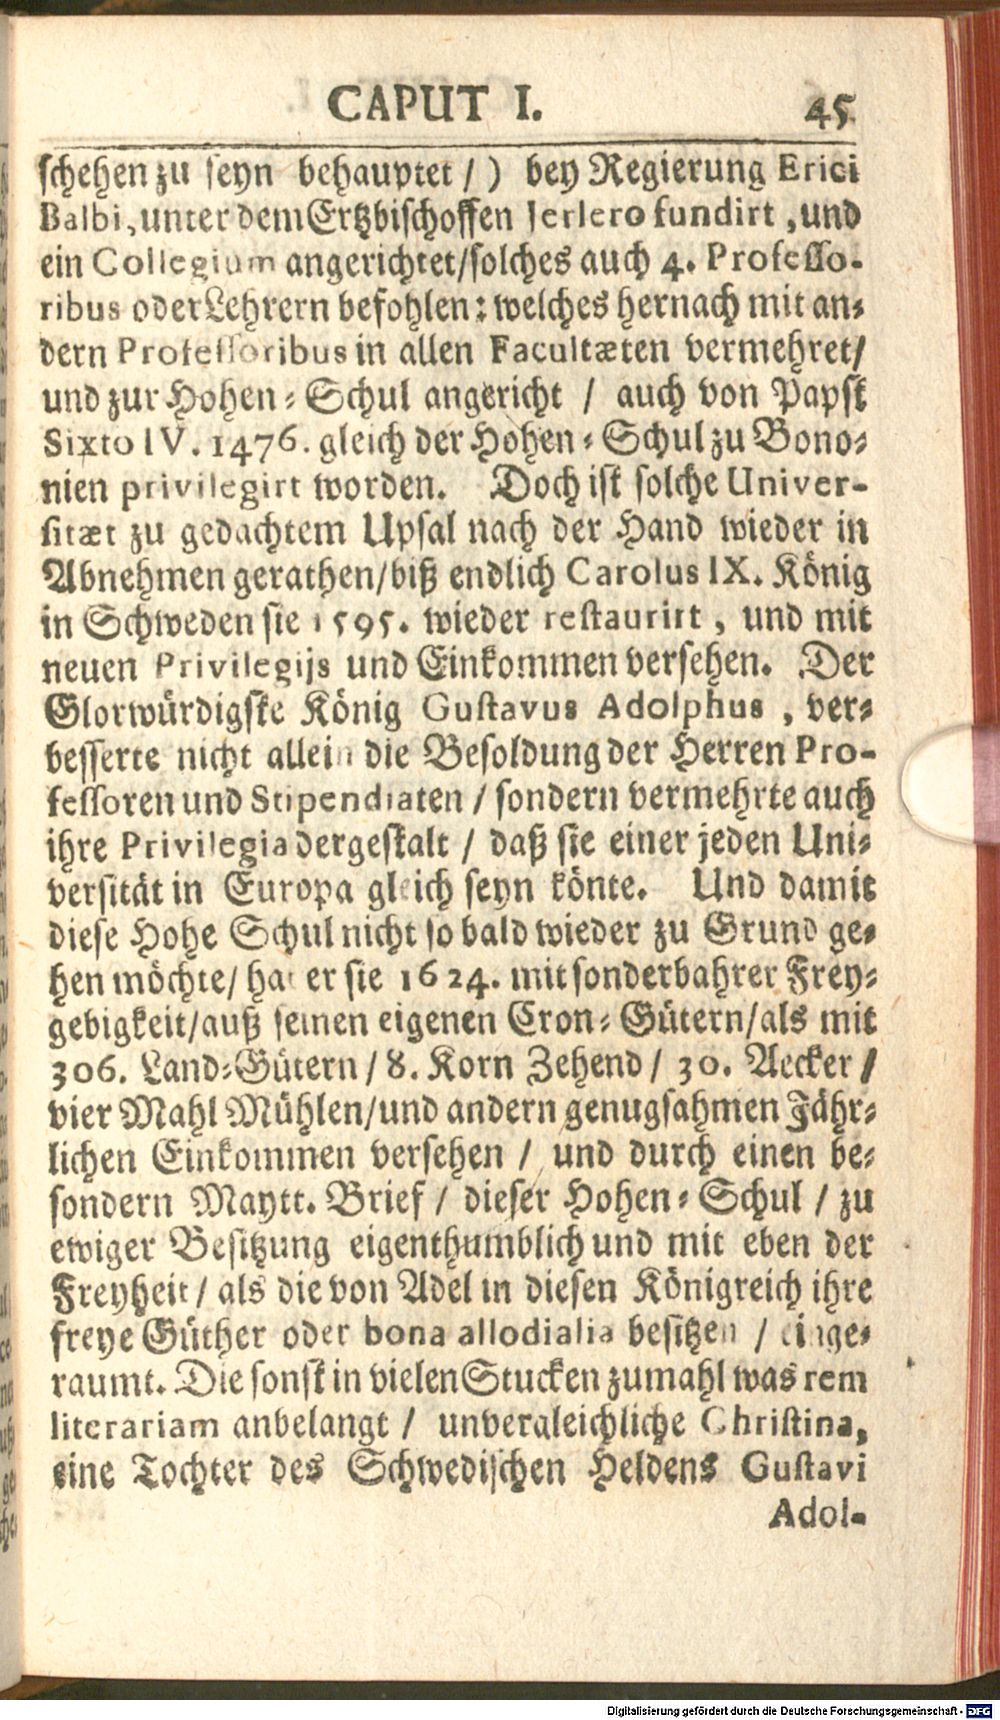 CAPUT I. 45
schehen zu seyn behauptet / ) bey Regierung Erici
Balbi, unter dem Ertzbischoffen Jerlero fundirt , und
ein Collegium angerichtet/solches auch 4. Professo-
ribus oder Lehrern befohlen: welches hernach mit an-
dern Professoribus in allen Facultæten vermehret/
und zur Hohen-Schul angericht / auch von Papst
Sixto IV. 1476. gleich der Hohen-Schul zu Bono-
nien privilegirt worden. Doch ist solche Univer-
sitæt zu gedachtem Upsal nach der Hand wieder in
Abnehmen gerathen/biß endlich Carolus IX. König
in Schweden sie 1595. wieder restaurirt , und mit
neuen Privilegijs und Einkommen versehen. Der
Glorwürdigste König Gustavus Adolphus , ver-
besserte nicht allein die Besoldung der Herren Pro-
fessoren und Stipendiaten / sondern vermehrte auch
ihre Privilegia dergestalt / daß sie einer jeden Uni-
versität in Europa gleich seyn könte. Und damit
diese Hohe Schul nicht so bald wieder zu Grund ge-
hen möchte/ hat er sie 1624. mit sonderbahrer Frey-
gebigkeit/auß seinen eigenen Cron-Gütern/als mit
306. Land-Gütern / 8. Korn Zehend / 30. Aecker /
vier Mahl Mühlen/und andern genugsahmen Jähr-
lichen Einkommen versehen / und durch einen be-
sondern Maytt. Brief / dieser Hohen-Schul / zu
ewiger Besitzung eigenthumblich und mit eben der
Freyheit / als die von Adel in diesen Königreich ihre
freye Güther oder bona allodialia besitzen / einge-
raumt. Die sonst in vielen Stucken zumahl was rem
literariam anbelangt / unvergleichliche Christina,
eine Tochter des Schwedischen Heldens Gustavi
Adol-
Digitalisierung gefördert durch die Deutsche Forschungsgemeinschaft - DFG